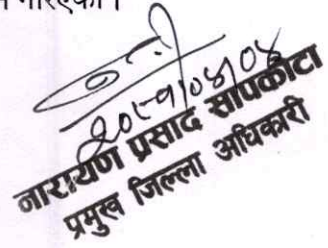 गरिएको।
२०८१/०४/०४
नारायण प्रसाद सापकोटा
प्रमुख जिल्ला अधिकारी